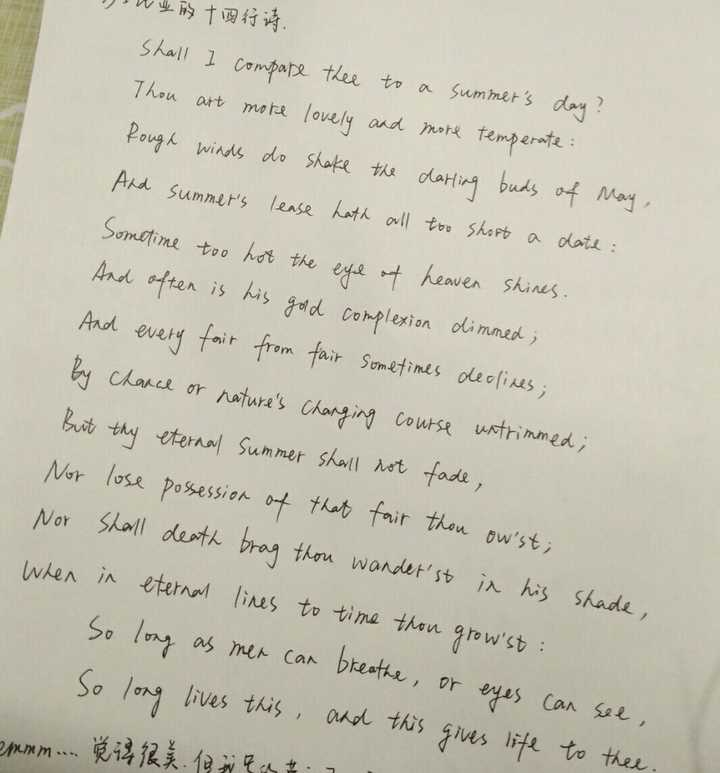 亚的十四行诗.
Shall I compare thee to a summer's day?
Thou art more lovely and more temperate:
Rough winds do shake the darling buds of May,
And summer's lease hath all too short a date:
Sometime too hot the eye of heaven shines.
And often is his gold complexion dimmed;
And every fair from fair sometimes declines;
By chance or nature's changing course untrimmed;
But thy eternal summer shall not fade,
Nor lose possession of that fair thou ow'st;
Nor shall death brag thou wander'st in his shade,
When in eternal lines to time thou grow'st:
So long as men can breathe, or eyes can see,
So long lives this, and this gives life to thee.
emmm.... 觉得很美.但